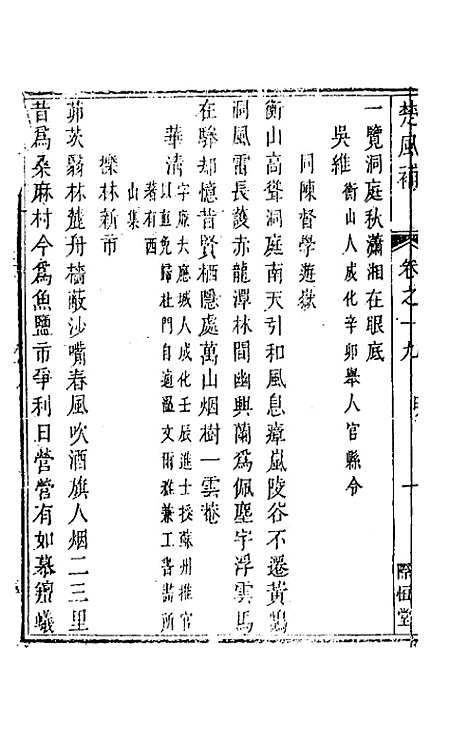 楚風補
卷之十九
一覽洞庭秋瀟湘在眼底
吳維衡山人成化辛卯舉人官縣令
同陳督學遊嶽
衡山高聳洞庭南天引和風息瘴嵐陵谷不遷黃鵠
洞風雷長護赤龍潭林間幽興蘭為佩塵宇浮雲馬
在驂却憶昔賢栖隱處萬山烟樹一雲菴
華清字廉夫應城人成化壬辰進士授蘇州推官
以直免歸杜門自適溫文爾雅兼工書畫所
著有西
山集
櫟林新市
茆茨翳林麓舟檣蔽沙嘴春風吹酒旗人烟二三里
昔為桑麻村今為魚鹽市爭利日營營有如慕羶蟻